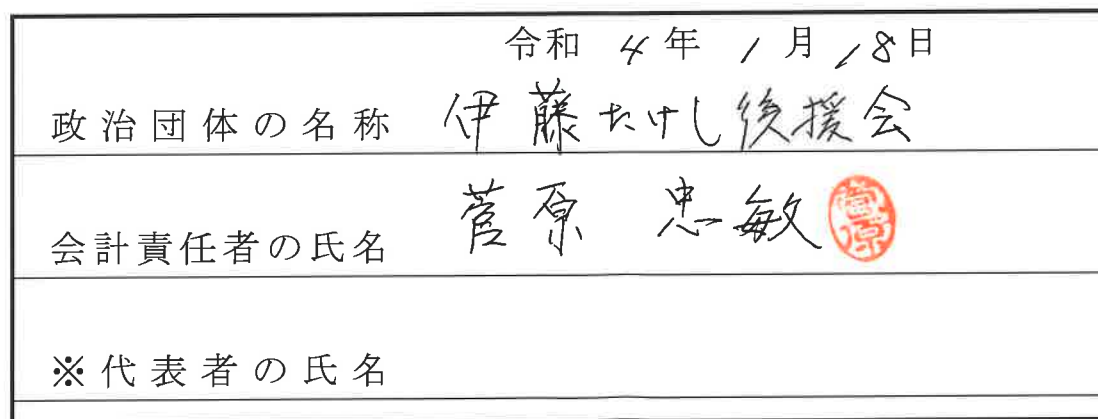 令和 4年 1月 18日
政治団体の名称 伊藤たけし後援会
会計責任者の氏名 菅原 忠敏 菅原
※代表者の氏名